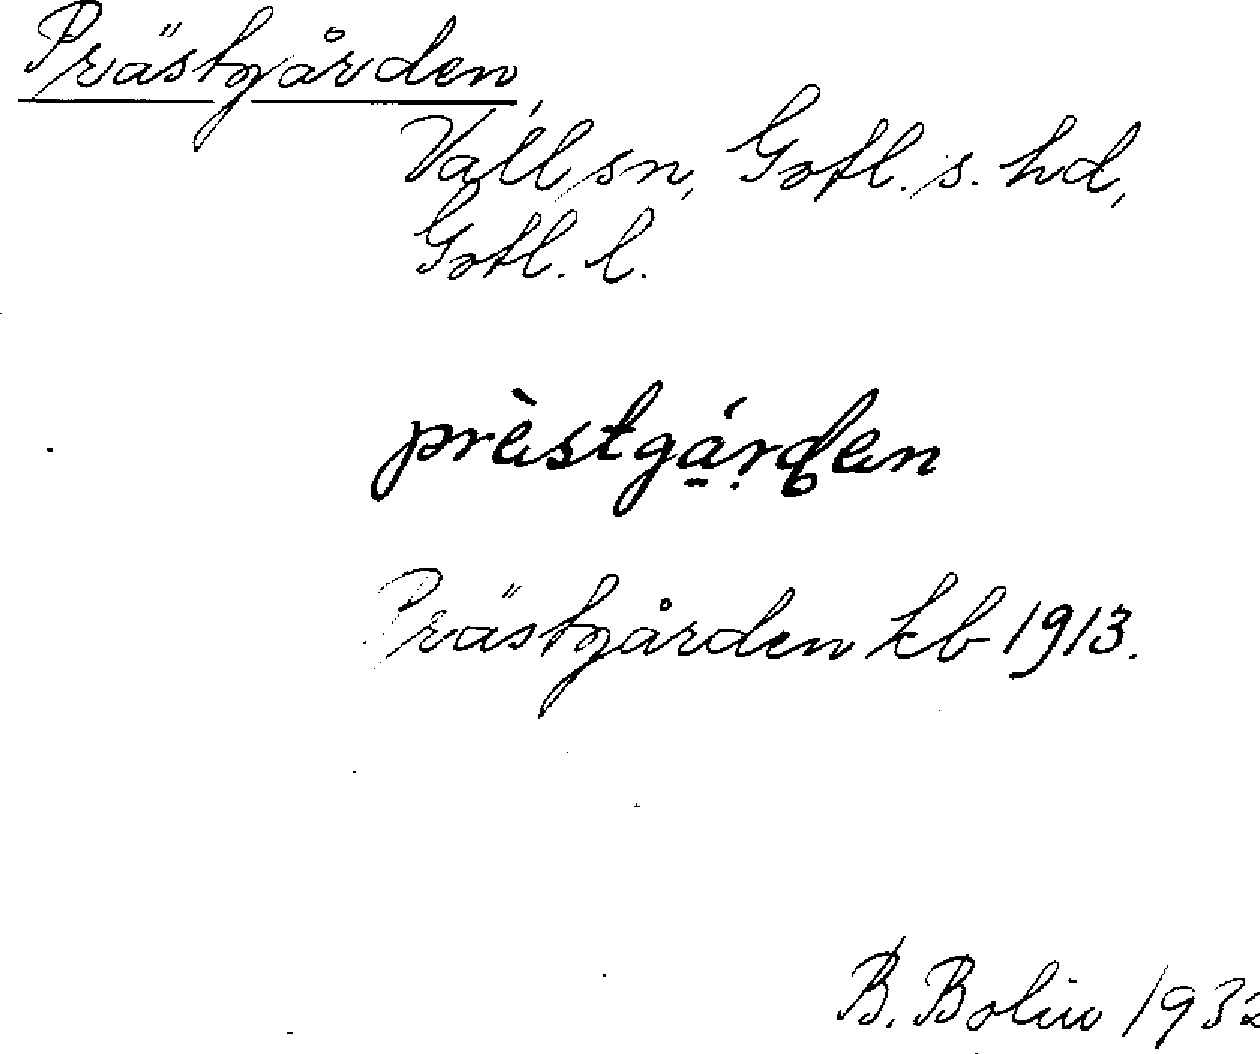 Prästgården,
Vall sn, Gotl. s. hd,
Gotl. l.
prèstgárden
Prästgården kb 1913.
B. Bolin 1932